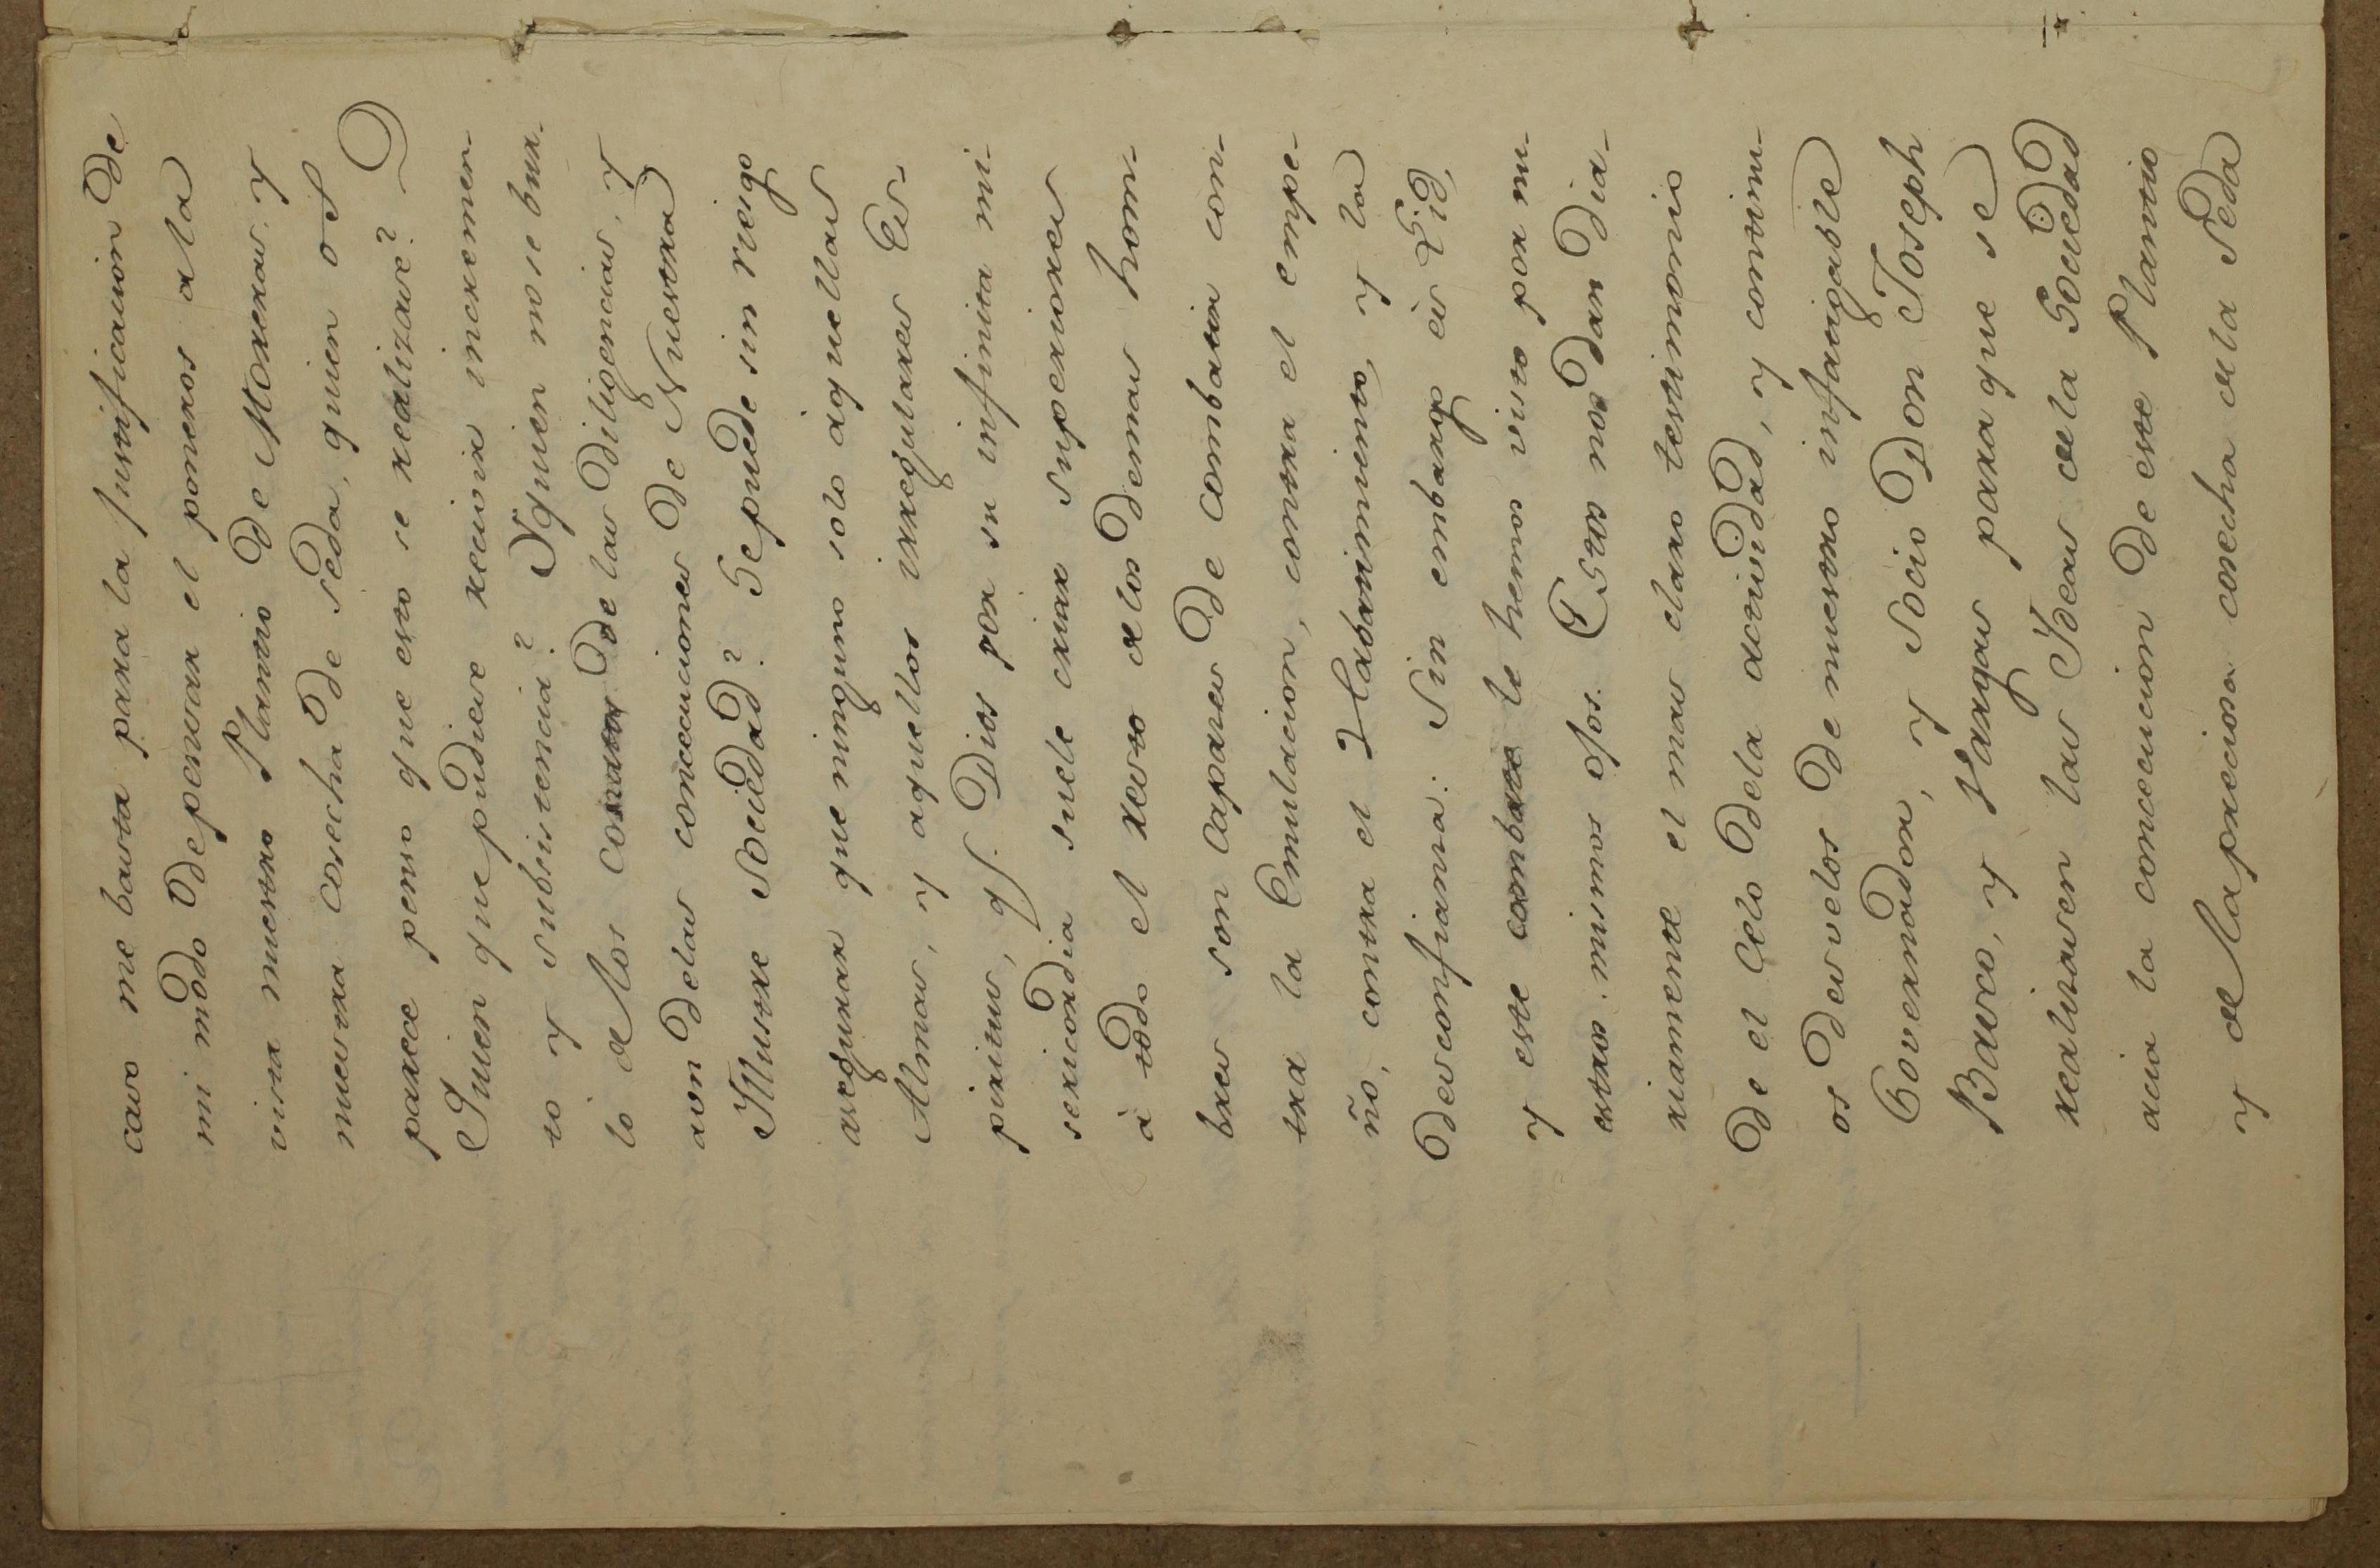 caso me basta para la justificacion de
mi modo de pensar el poneros a la
vista nuestro Plantio de Moreras, y
nuestra cosecha de seda, quien os
parece penso que esto se realizase?
Quien que pudiese recivir incremen-
to y subsistencia? Y quien no se bur-
lò de los conatos de las diligencias, y
aun de las consecuciones de Nuestra
Ilustre Sociedad? Se puede sin riesgo
asegurar que ninguno solo aquellas
Almas, y aquellos irregulares Es-
piritus, q.ᵉ Dios por su infinita mi-
sericordia suele criar superiores
à todo el resto de los demas hom-
bres son capaces de combatir con-
tra la Emulacion, contra el empe-
ño, contra el abatimiento, y la
desconfianza. Sin embargo es Lid,
y este combate le hemos visto por nu-
estros mismos ojos. Estos nos dan dia-
riamente el mas claro testimonio
de el celo de la actividad, y continu-
os desvelos de nuestro infatigable
Governador, y Socio Don Joseph
Basco, y Vargas para que se
realizasen las Ideas de la Sociedad
acia la consecucion de este Plantio
y de la preciosa cosecha de la Seda